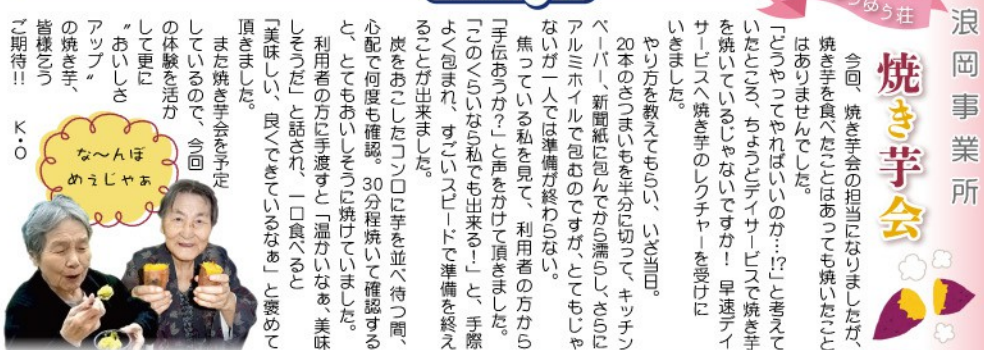 浪岡事業所
ゅう荘
焼き芋会
今回、焼き芋会の担当になりましたが、
焼き芋を食べたことはあっても焼いたこと
はありませんでした。
「どうやってやればいいのか…!?」と考えて
いたところ、ちょうどデイサービスで焼き芋
を焼いているじゃないですか！早速デイ
サービスへ焼き芋のレクチャーを受けに
いきました。
やり方を教えてもらい、いざ当日。
20本のさつまいもを半分に切って、キッチン
ペーパー、新聞紙に包んでから濡らし、さらに
アルミホイルで包むのですが、とてもじゃ
ないが一人では準備が終わらない。
焦っている私を見て、利用者の方から
「手伝おうか？」と声をかけて頂きました。
「このくらいなら私でも出来る！」と、手際
よく包まれ、すごいスピードで準備を終え
ることが出来ました。
炭をおこしたコンロに芋を並べ待つ間、
心配で何度も確認。30分程焼いて確認する
と、とてもおいしそうに焼けていました。
利用者の方に手渡すと「温かいなぁ、美味
しそうだ」と話され、一口食べると
「美味しい、良くできているなぁ」と褒めて
頂きました。
また焼き芋会を予定
しているので、今回
の体験を活か
して更に
〝おいしさ
アップ〟
の焼き芋、
皆様乞う
ご期待!!
K・O
な〜んぼ
めぇじゃぁ